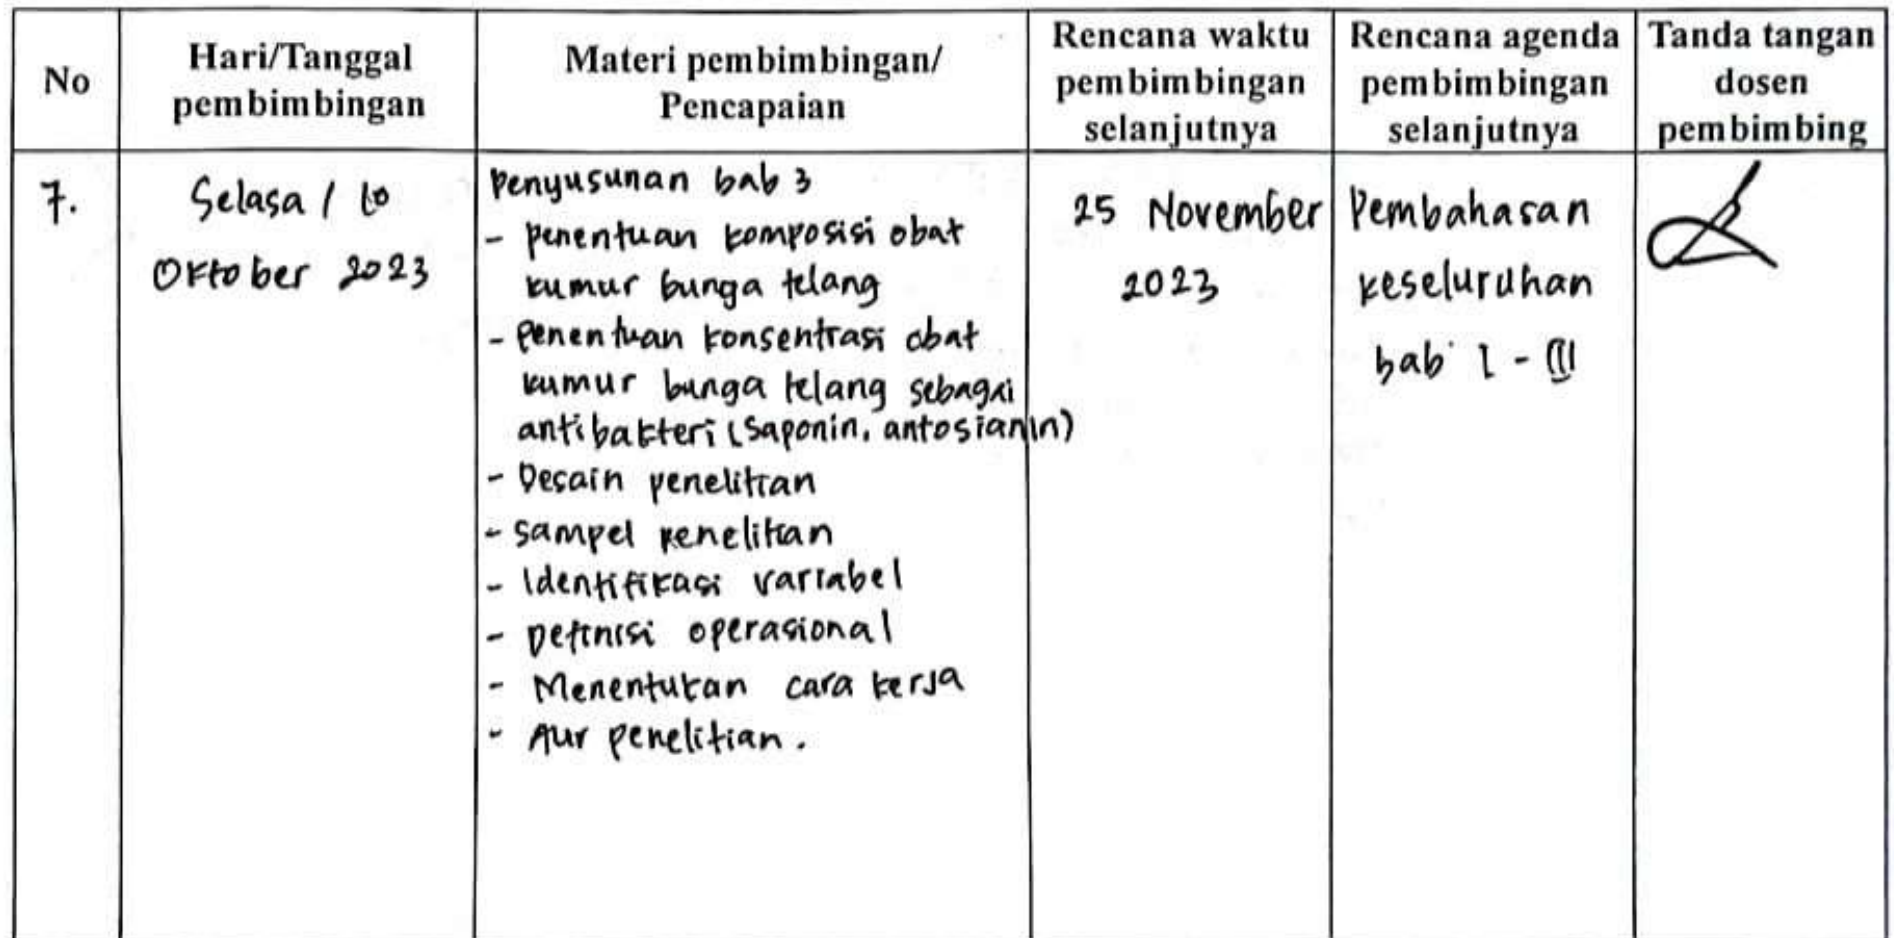 No
Hari/Tanggal
pembimbingan
Materi pembimbingan/
Pencapaian
Rencana waktu
pembimbingan
selanjutnya
Rencana agenda
pembimbingan
selanjutnya
Tanda tangan
dosen
pembimbing
7.
Selasa / 10
Oktober 2023
Penyusunan bab 3
- Penentuan komposisi obat
kumur bunga telang
- Penentuan konsentrasi obat
kumur bunga telang sebagai
antibakteri (Saponin, antosianin)
- Desain penelitian
- Sampel penelitian
- Identifikasi variabel
- Definisi operasional
- Menentukan cara kerja
- Alur penelitian.
25 November
2023
Pembahasan
keseluruhan
bab I - III